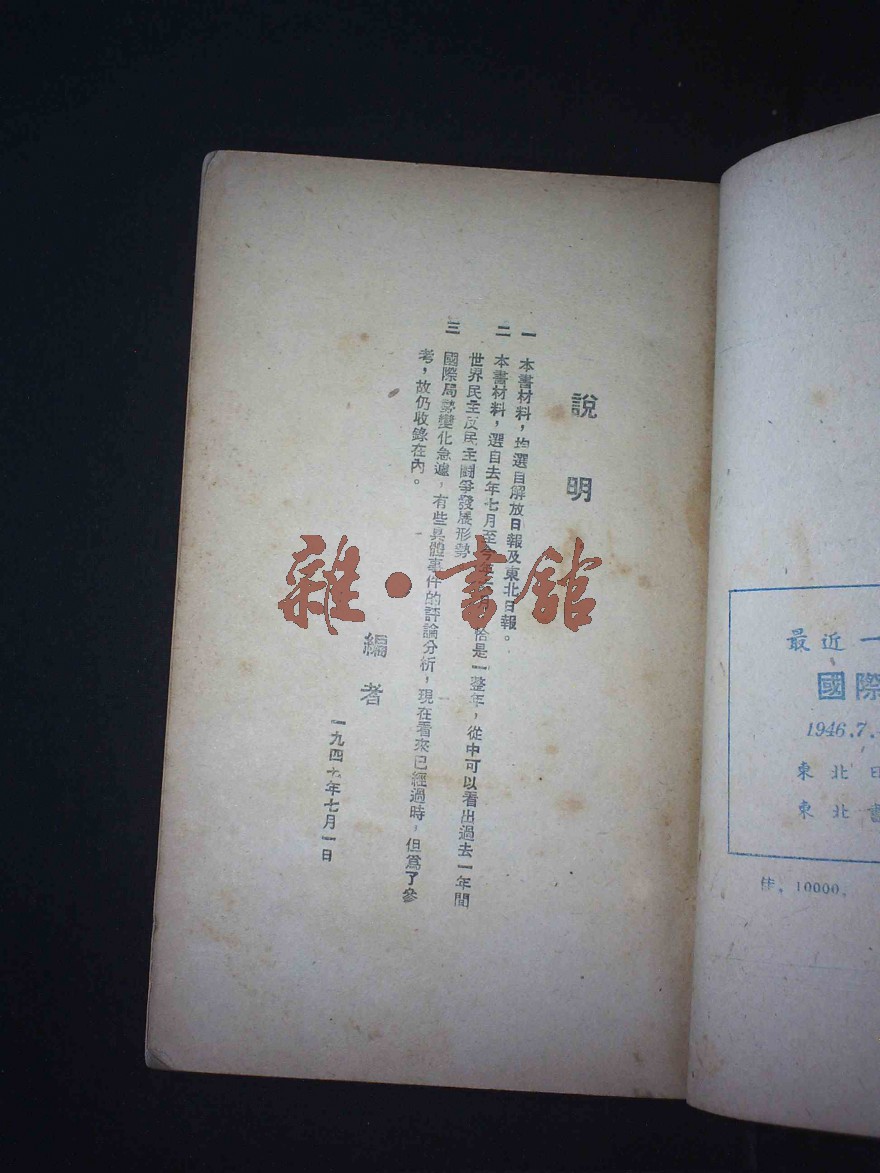 說明
一 本書材料，均選自解放日報及東北日報。
二 本書材料，選自去年七月至今年 恰是一整年，從中可以看出過去一年間
世界民主反民主鬪爭發展形勢
三 國際局勢變化急遽，有些具體事件的評論分析，現在看來已經過時，但爲了參
考，故仍收錄在內。
編者
一九四七年七月一日
雜·書館
最近一
國際
1946.7.
東北日
東北書
10000.